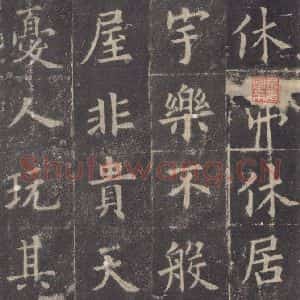 休弗休居
宇樂不般
屋非貴天
憂人玩其
Shufawang.CN